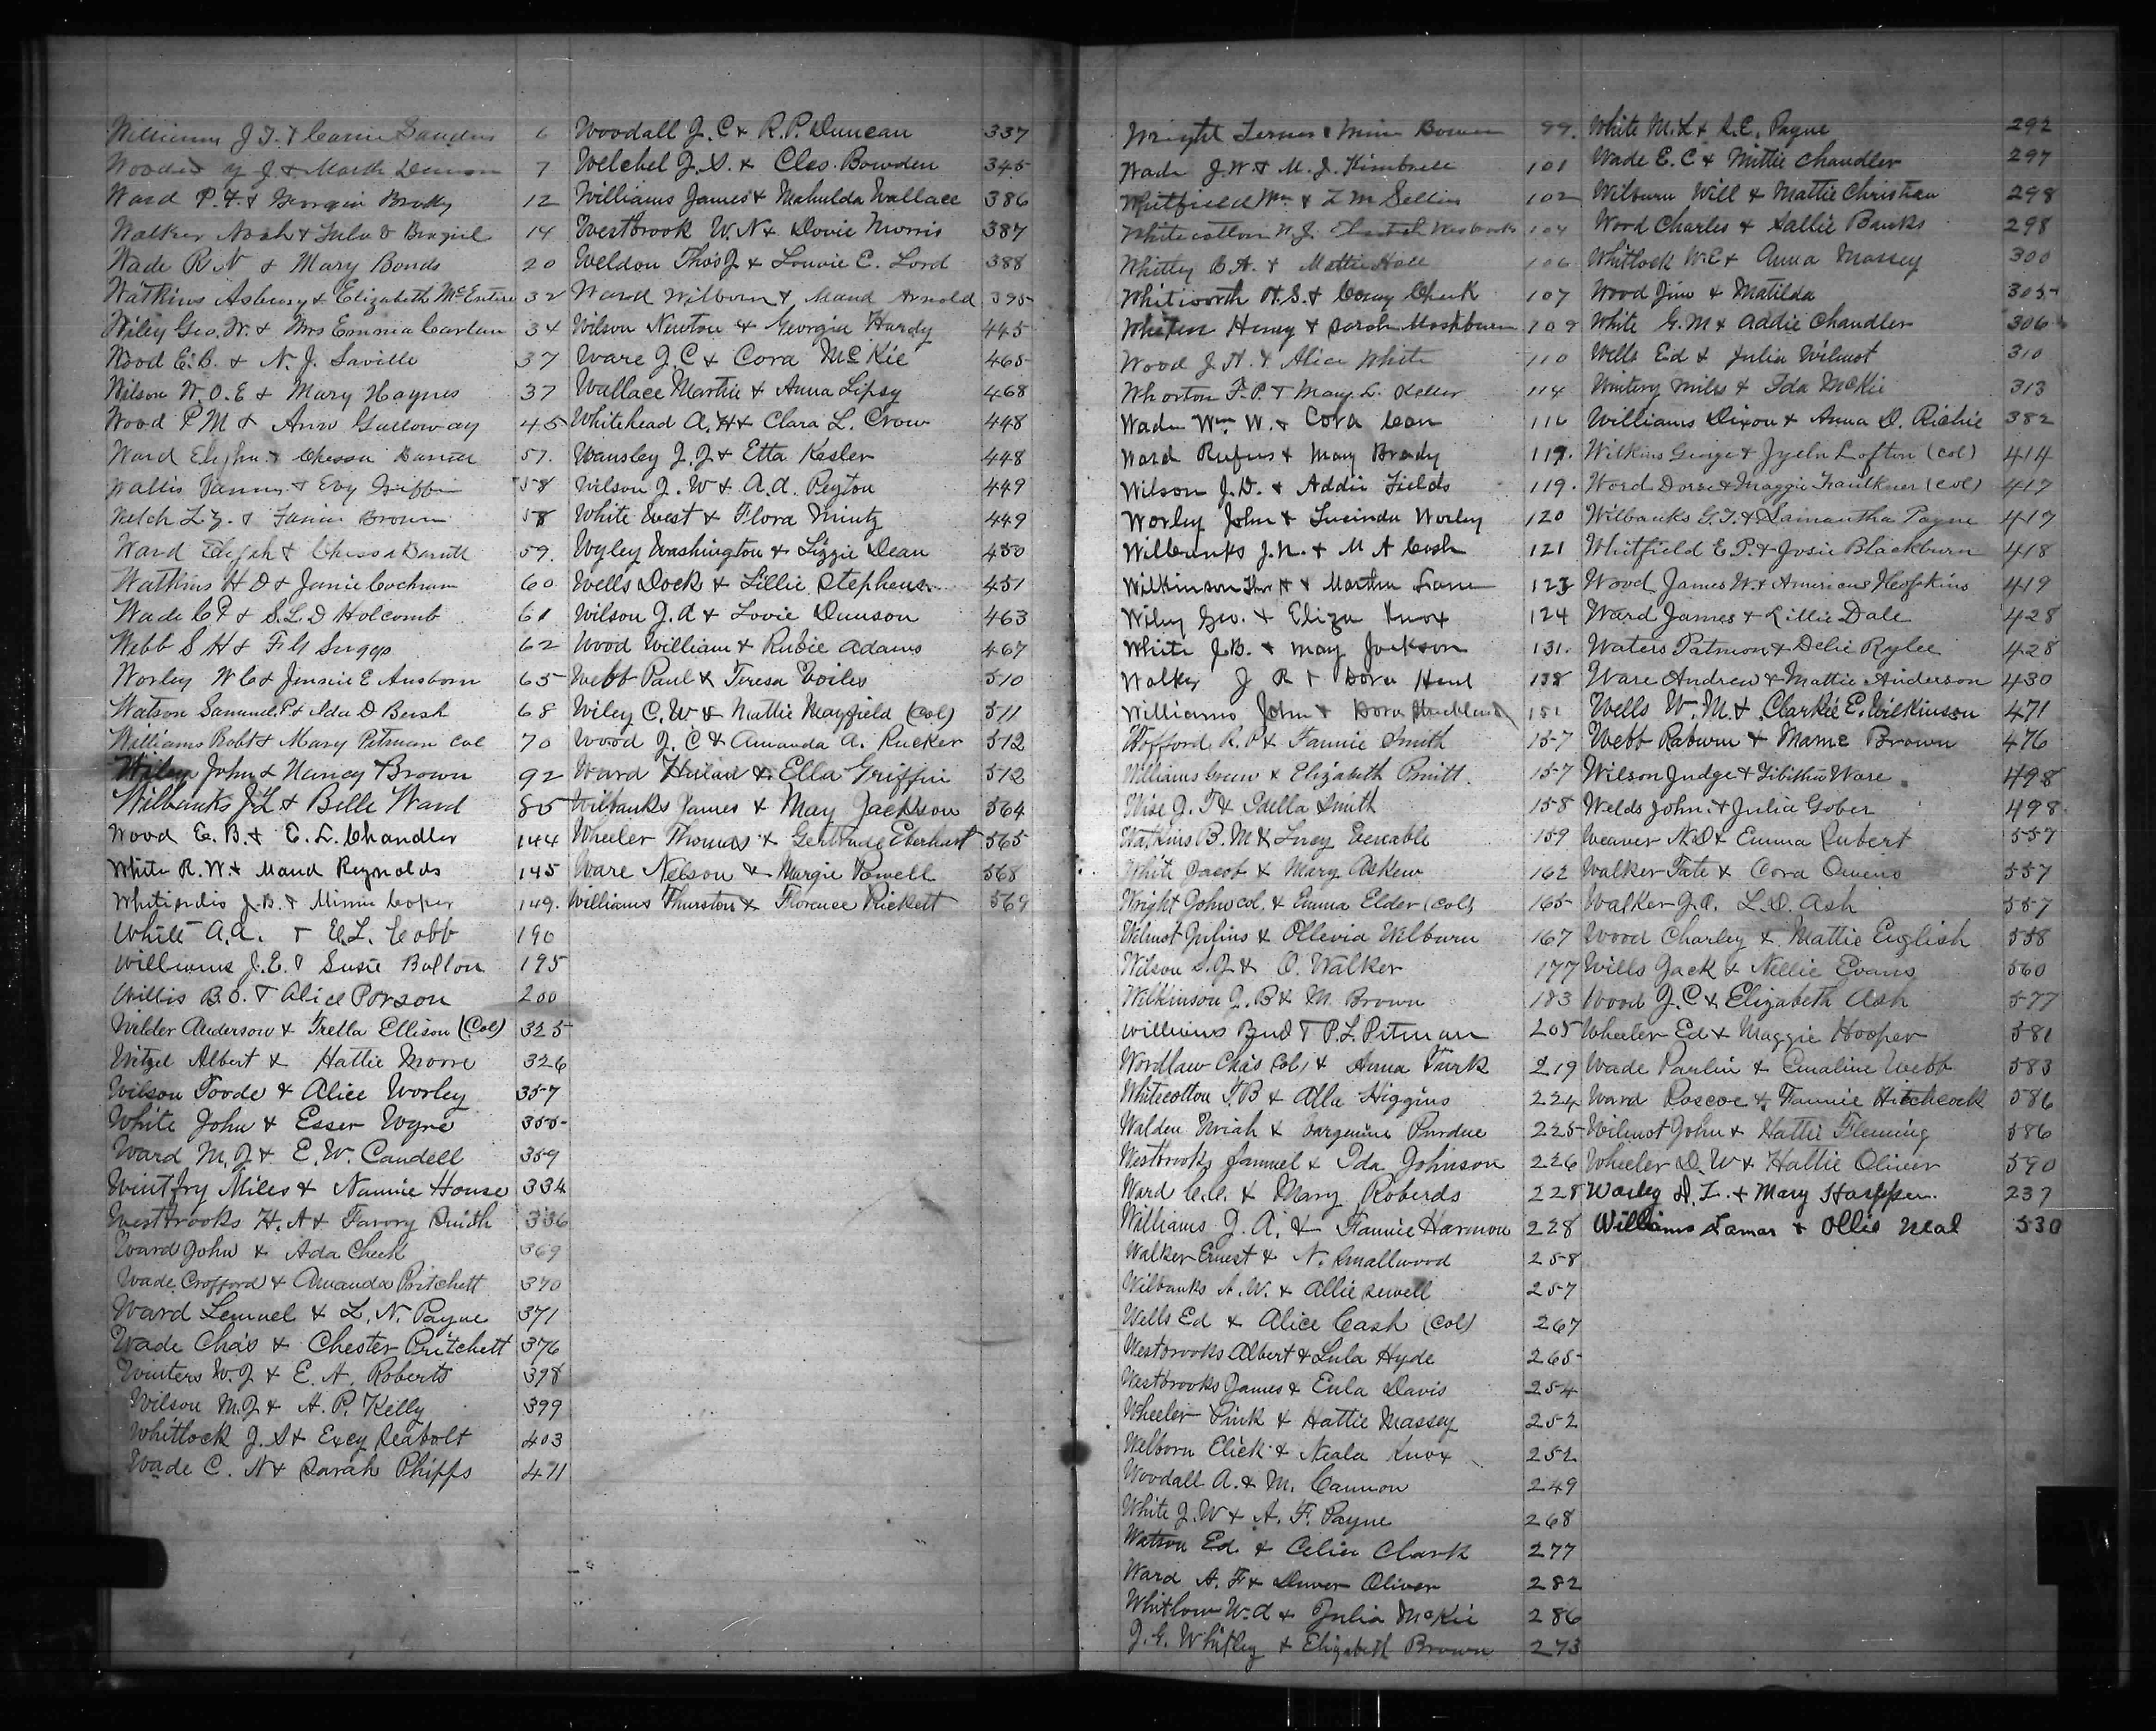 Williams J. T. & Carrie Sanders 6
J. & Martha 7
Ward P. F. & Georgia Brady 12
Walker Noah & Lula V 14
Wade R N & Mary Bonds 20
Watkins Asbury & Elizabeth McEntire 32
Wiley Geo. W. & Mrs Emma Carlan 34
Wood E. B. & N. J. Saville 37
Wilson W. O. E & Mary Haynes 37
Wood P M & Ann Galloway 45
Ward Elijhu & Chessa 57.
Wallis & Evy Griffin 58
Welch L. Z. & Fannie Brown 58
Ward Elijah & Chessa 59.
Watkins H D & Janie Cochran 60
Wade C P & S. L. D Holcomb 61
Webb S H & F G Suggs 62
Worley W C & Jennie E Ausborn 65
Watson Samuel P & Ida D Bush 68
Williams Robt & Mary Pitman Col 70
Wiley John & Nancy Brown 92
Wilbanks J. L & Belle Ward 85
Wood E. B. & E. L. Chandler 144
White R. W & Maud Reynolds 145
J. B. & Minnie Coper 149.
White A. A. & E. L. Cobb 190
Williams J. E. & Susie Bolton 195
Willis B. O. & Alice Porson 200
Wilder Anderson & Trella Ellison (Col) 325
Witzel Albert & Hattie Moore 326
Wilson Toode & Alice Worley 357
White John & Esser Wyre 355
Ward M. J & E. W. Caudell 359
Wintfry Miles & Nannie House 334
Westbrooks H. A & Favory Smith 336
Ward John & Ada Cheek 369
Wade Crofford & Amanda Pritchett 370
Ward Lemuel & L. N. Payne 371
Wade Chas & Chester Pritchett 376
Winters W. J & E. A. Roberts 398
Wilson M. J & H. P. Kelly 399
Whitlock J. S & Excy Seabolt 403
Wade C. N & Sarah Phipps 471
Woodall J. C & R. P. Duncan 337
Welchel J. S. & Cleo Bowden 345
Williams James & Mahulda Wallace 386
Westbrook W. N & Dovie Morris 387
Weldon Thos J & Louvie E. Lord 388
Ward Wilborn & Maud Arnold 395
Wilson Newton & Georgia Hardy 445
Ware J. C & Cora McKie 465
Wallace Martin & Anna Lipsy 468
Whitehead A. H & Clara L. Crow 448
Wansley J. J & Etta Kesler 448
Wilson J. W & A. A. Peyton 449
White West & Flora Mintz 449
Wyley Washington & Lizzie Dean 450
Wells Dock & Lillie Stephens 451
Wilson J. A & Lovie Dunson 463
Wood William & Rubie Adams 467
Webb Paul & Teresa Voiles 510
Wiley C. W & Mattie Mayfield (Col) 511
Wood J. C & Amanda A. Rucker 512
Ward & Ella Griffin 512
Wilbanks James & May Jackson 564
Wheeler Thomas & Gertrude Eberhart 565
Ware Nelson & Margie Powell 568
Williams Thurston & Florence Pickett 569
Wright & Bowen 99.
Wade J. W. & M. J. Kimbrell 101
Whitfield Wm & L M Sellers 102
Whitecotton W. J. Westbrooks 104
Whitley B. A. & Mattie Hall 106
Whitworth H. S. & Cheek 107
Whiten Henry & Sarah Mashburn 109
Wood J. H. & Alice White 110
Whorton F. P. & Mary L. Keller 114
Wade Wm W. & Cora Carr 116
Ward Rufus & Mary Brady 119.
Wilson J. D. & Addie Fields 119.
Worley John & Lucinda Worley 120
Wilbanks J. N. & M A Cash 121
Wilkinson Thos H & Martha 123
Wiley Geo. & Eliza Knox 124
White J. B. & May Jackson 131.
Walker J R & Dora 138
Williams John & Dora Strickland 151
Wofford R. P & Fannie Smith 157
Williams Green & Elizabeth Pruitt 157
Wise J. T & Idella Smith 158
Watkins B. M & Lucy Venable 159
White Jacob & Mary Askew 162
Wright John col. & Emma Elder (Col) 165
Wilmot Julius & Ollevia Wilburn 167
Wilson S. J & O. Walker 177
Wilkinson J. B & M. Brown 183
Williams Bud & P. L. Pitman 205
Wordlaw Chas Col, & Anna Turk 219
Whitecotton T. B & Alla Higgins 224
Walden Uriah & Purdue 225
Westbrooks Samuel & Ida Johnson 226
Ward C. C. & Mary Roberds 228
Williams J. A. & Fannie Harmon 228
Walker Ernest & N. Smallwood 258
Wilbanks A. W. & Allie Sewell 257
Wells Ed & Alice Cash (Col) 267
Westbrooks Albert & Lula Hyde 265
Westbrooks James & Eula Davis 254
Wheeler Pink & Hattie Massey 252
Welborn Elick & Neala Knox 252
Woodall A. & M. Cannon 249
White J. W & A. F. Payne 268
Watson Ed & Celia Clark 277
Ward A. F & Oliver 282
Whitlow W. A & Julia McKie 286
J. G. Whitley & Elizabeth Brown 273
White M. L & S. E. Payne 292
Wade E. C & Mittie Chandler 297
Wilburn Will & Mattie Christian 298
Wood Charles & Sallie Banks 298
Whitlock W. E & Anna Massey 300
Wood Jim & Matilda 305
White G. M & Addie Chandler 306
Wells Ed & Julia Wilmot 310
Miles & Ida McKie 313
Williams Dixon & Anna D. Richie 382
Wilkins George & Lofton (Col) 414
Word & Maggie Faulkner (Col) 417
Wilbanks G. T. & Samantha Payne 417
Whitfield E. P. & Josie Blackburn 418
Wood James W. & Americus Hopkins 419
Ward James & Lillie Dale 428
Waters Patmon & Delie Rylee 428
Ware Andrew & Mattie Anderson 430
Wells W. M. & Clarkie E. Wilkinson 471
Webb Raburn & Mame Brown 476
Wilson Judge & Ware 498
Welds John & Julia Gober 498
Weaver N. D & Emma Rubert 557
Walker Tate & Cora Owens 557
Walker J. A. L. D. Ash 557
Wood Charley & Mattie English 558
Wills Jack & Nellie Evans 560
Wood J. C & Elizabeth Ash 577
Wheeler Ed & Maggie Hooper 581
Wade Parlin & Emaline Webb 583
Ward Roscoe & Fannie Hitchcock 586
Wilmot John & Hattie Fleming 586
Wheeler D. W & Hattie Oliver 590
Worley D. L. & Mary 237
Williams Lamar & Ollie Neal 530